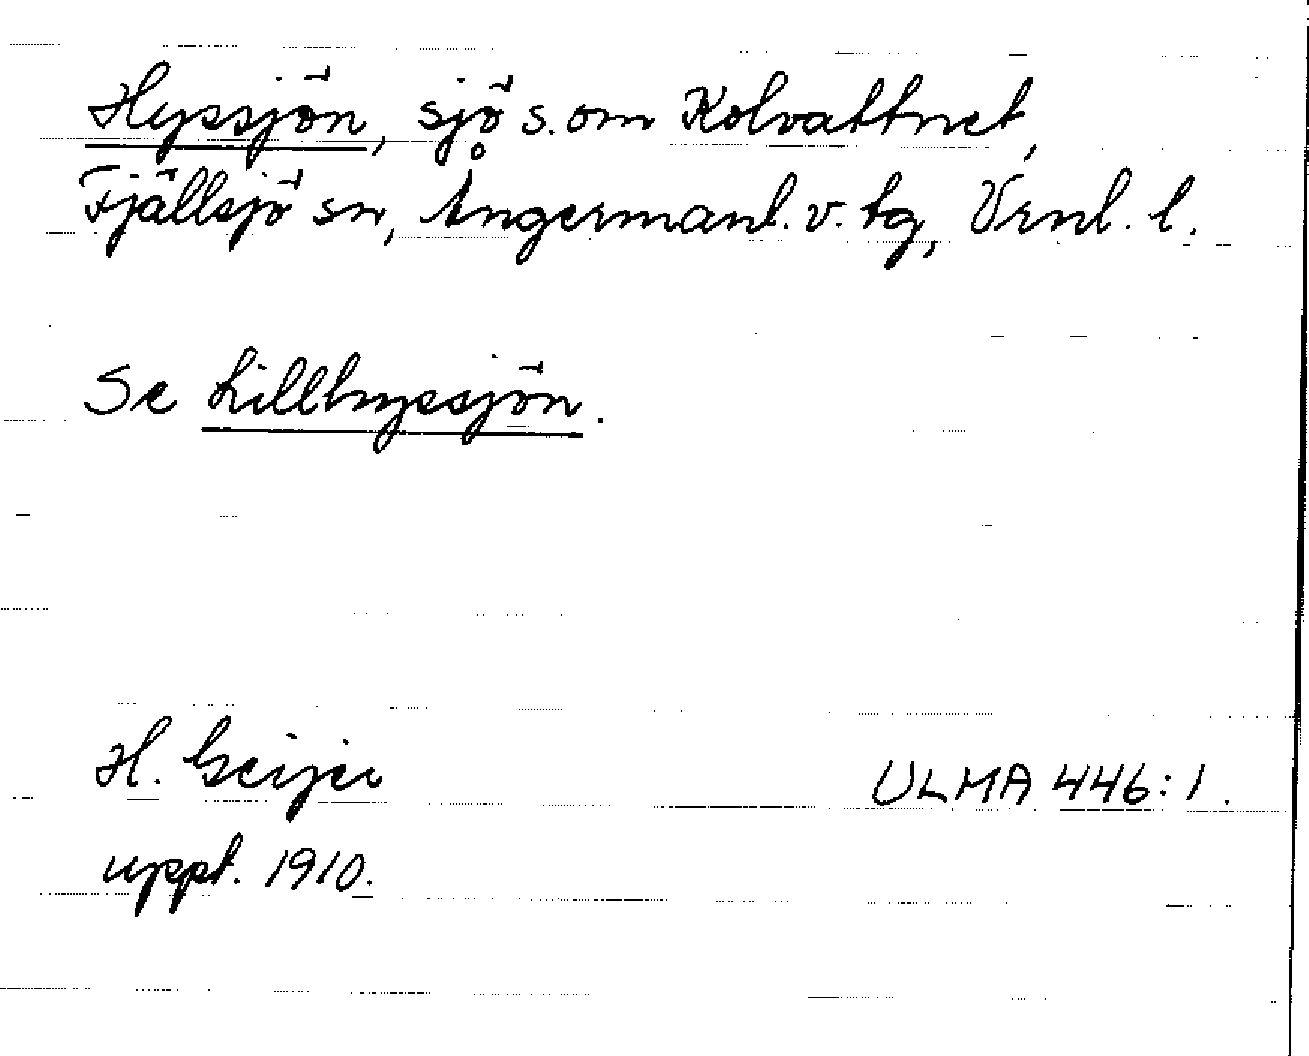 Hyssjön, sjö s. om Kolvattnet,
Fjällsjö sn, Ångermanl. v. tg, Vrnl. l.
Se Lillhyssjön.
H. Geijer ULMA 446:1.
uppt. 1910.